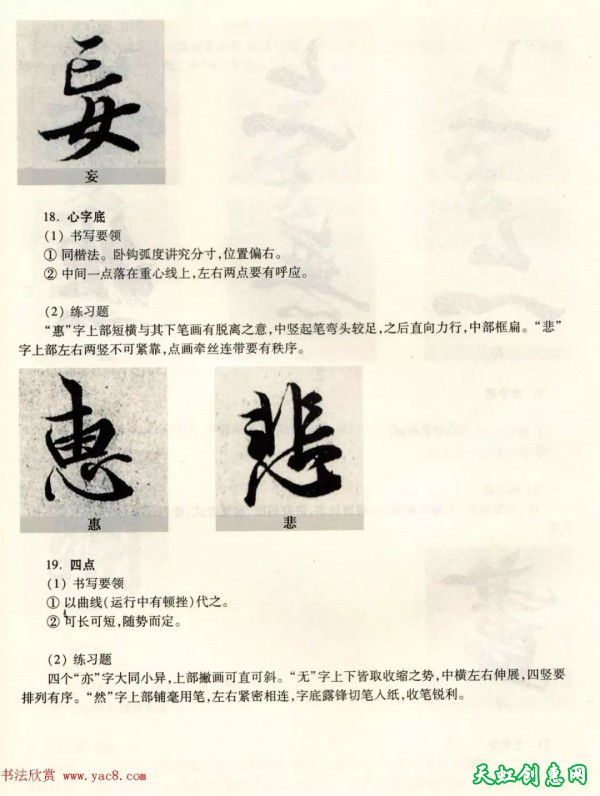 妄
妄
18. 心字底
(1) 书写要领
① 同楷法。卧钩弧度讲究分寸,位置偏右。
② 中间一点落在重心线上,左右两点要有呼应。
(2) 练习题
“惠”字上部短横与其下笔画有脱离之意,中竖起笔弯头较足,之后直向力行,中部框扁。“悲”
字上部左右两竖不可紧靠,点画牵丝连带要有秩序。
惠 悲
惠 悲
19. 四点
(1) 书写要领
① 以曲线(运行中有顿挫)代之。
② 可长可短,随势而定。
(2) 练习题
四个“亦”字大同小异,上部撇画可直可斜。“无”字上下皆取收缩之势,中横左右伸展,四竖要
排列有序。“然”字上部铺毫用笔,左右紧密相连,字底露锋切笔入纸,收笔锐利。
书法欣赏 www.yac8.com
天虹创意网